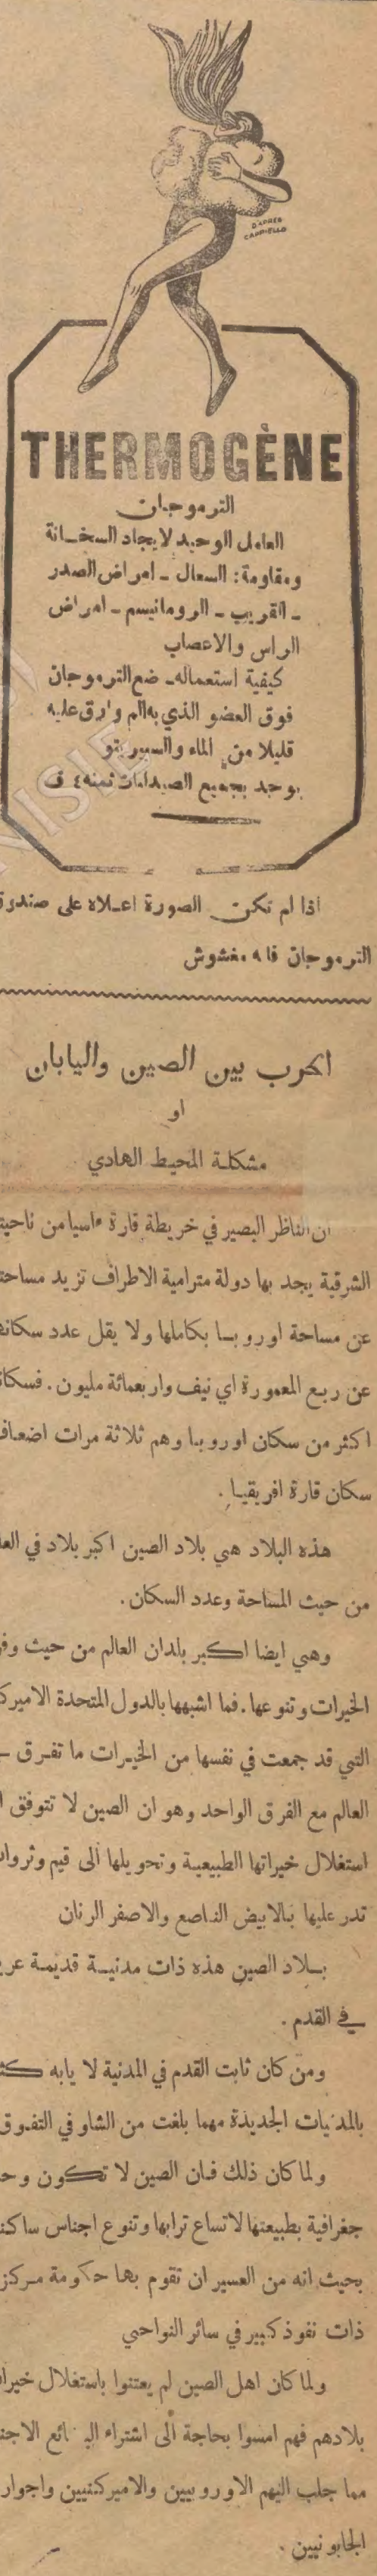 D'APRES
CAPPIELLO
THERMOGÈNE
الترموجان
العامل الوحيد لايجاد السخـانة
ومقاومة: السعال ـ امراض الصدر
ـ القريب ـ الروماتيسم ـ امراض
الراس والاعصاب
كيفية استعماله ـ ضع الترموجان
فوق العضو الذي به الم وارق عليه
قليلا من الماء والسبيريتو
يوجد بجميع الصيدليات ثمنه ٤ ف
اذا لم تكن الصورة اعـلاه على صندوق
الترموجان فا ه مغشوش
الحرب بين الصين واليابان
او
مشكلـة المحيط الهادي
ان الناظر البصير في خريطة قارة ءاسيا من ناحية
الشرقية يجد بها دولة مترامية الاطراف تزيد مساحته
عن مساحة اوروبـا بكاملها ولا يقل عدد سكانه
عن ربع المعمورة اي نيف واربعمائة مليون . فسكا
اكثر من سكان اوروبا وهم ثلاثة مرات اضعاف
سكان قارة افريقيـا .
هذه البلاد هي بلاد الصين اكبر بلاد في العا
من حيث المساحة وعدد السكان .
وهي ايضا اكبر بلدان العالم من حيث وفر
الخيرات وتنوعها . فما اشبهها بالدول المتحدة الاميرك
التي قد جمعت في نفسها من الخيرات ما تفرق
العالم مع الفرق الواحد وهو ان الصين لا تتوفق ا
استغلال خيراتها الطبيعيـة وتحويلها الى قيم وثروا
تدر عليها بالابيض الناصع والاصفر الرنان
بـلاد الصين هذه ذات مدنيـة قديمـة عر
في القدم .
ومن كان ثابت القدم في المدنية لا يابه كث
بالمدنيات الجديدة مهما بلغت من الشاو في التفوق
ولما كان ذلك فـان الصين لا تكون وحـ
جغرافية بطبيعتها لاتساع ترابها وتنوع اجناس ساكنـ
بحيث انه من العسير ان تقوم بهـا حكومة مـركز
ذات نفوذ كبير في سائر النواحي
ولما كان اهل الصين لم يعتنوا باستغلال خيرا
بلادهم فهم امسوا بحاجة الى اشتراء الب ائع الاجن
مما جلب اليهم الاوروبيين والاميركنيين واجوار
الجابونيين .